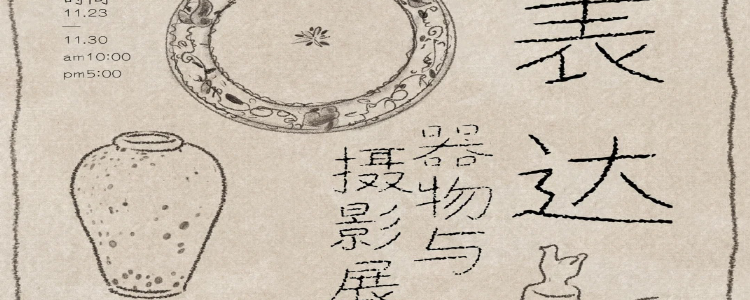 时间
11.23
—
11.30
am10:00
pm5:00
表达
器物与
摄影展